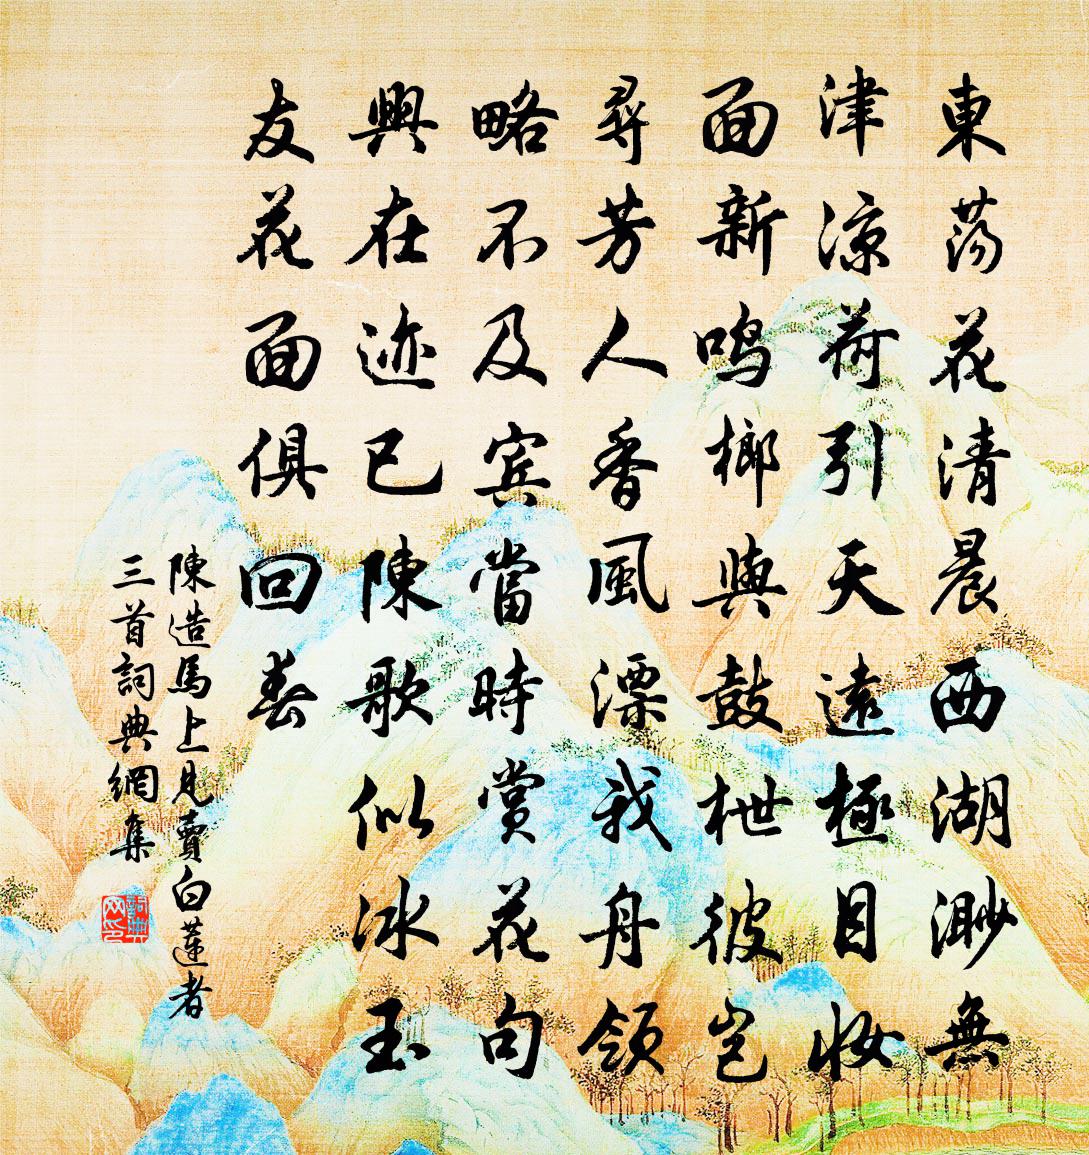 東蕩花清晨西湖渺無
津涼荷引天遠極目妝
面新鳴榔與鼓枻彼豈
尋芳人香風漂我舟領
略不及賓當時賞花句
興在迹已陳歌似冰玉
友花面俱回春
陳造馬上見賣白蓮者
三首詞典網集